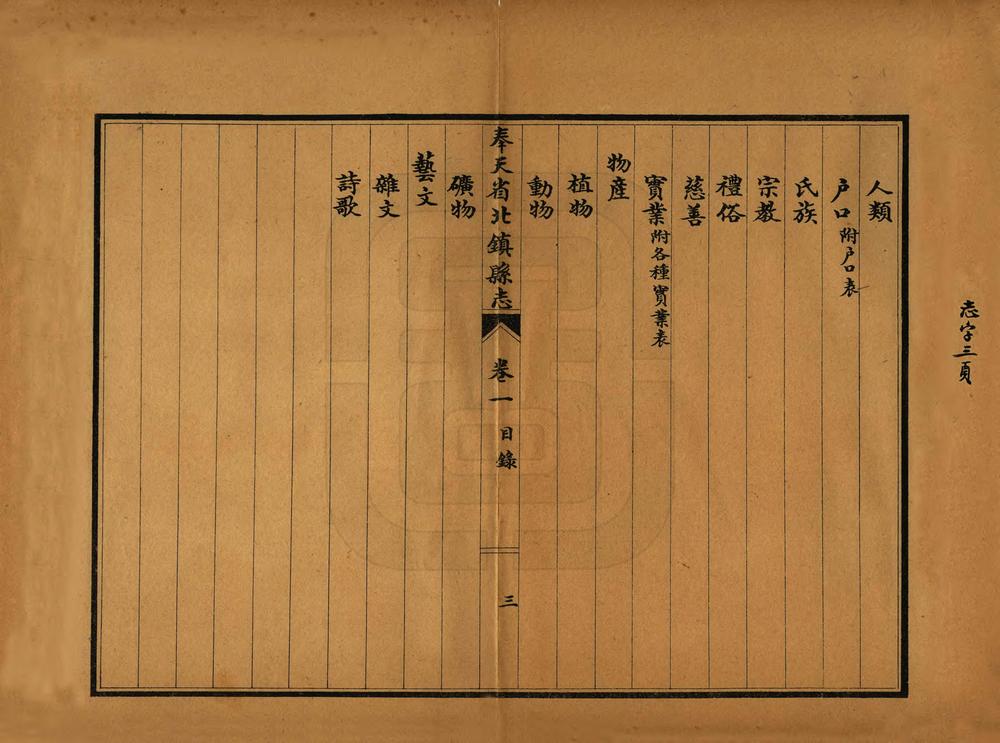 人類
户口附户口表
氏族
宗教
禮俗
慈善
實業附各種實業表
物産
植物
動物
奉天省北鎮縣志 卷一 目錄 三
礦物
藝文
雜文
詩歌
志字三頁